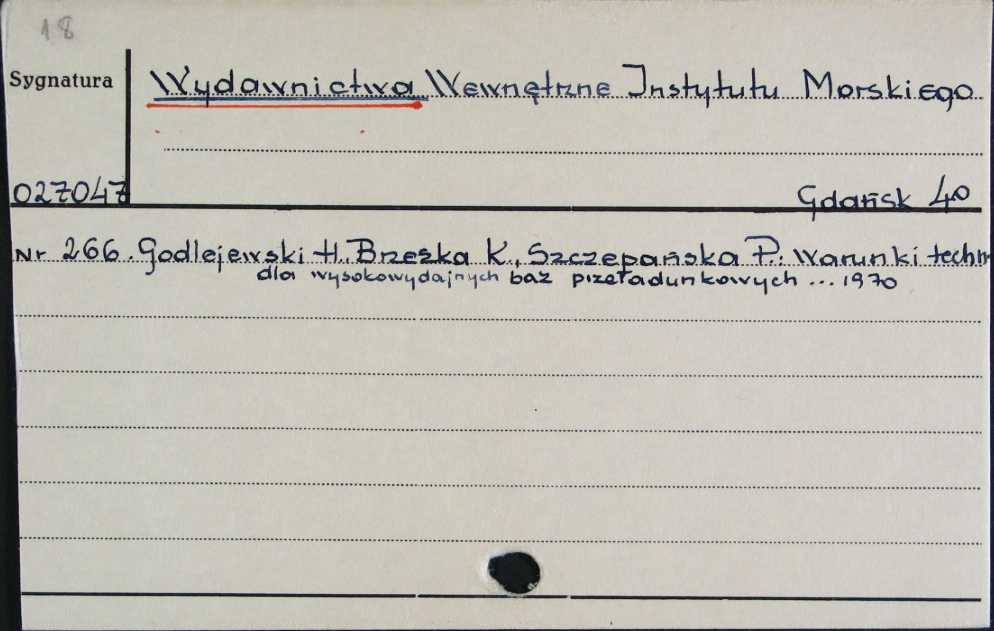 18
Sygnatura
Wydawnictwa Wewnętrzne Instytutu Morskiego
027047
Gdańsk 40
Nr 266. Godlejewski H. Brzezka K., Szczepańska P. Warunki techn
dla wysokowydajnych baz przeładunkowych ... 1970